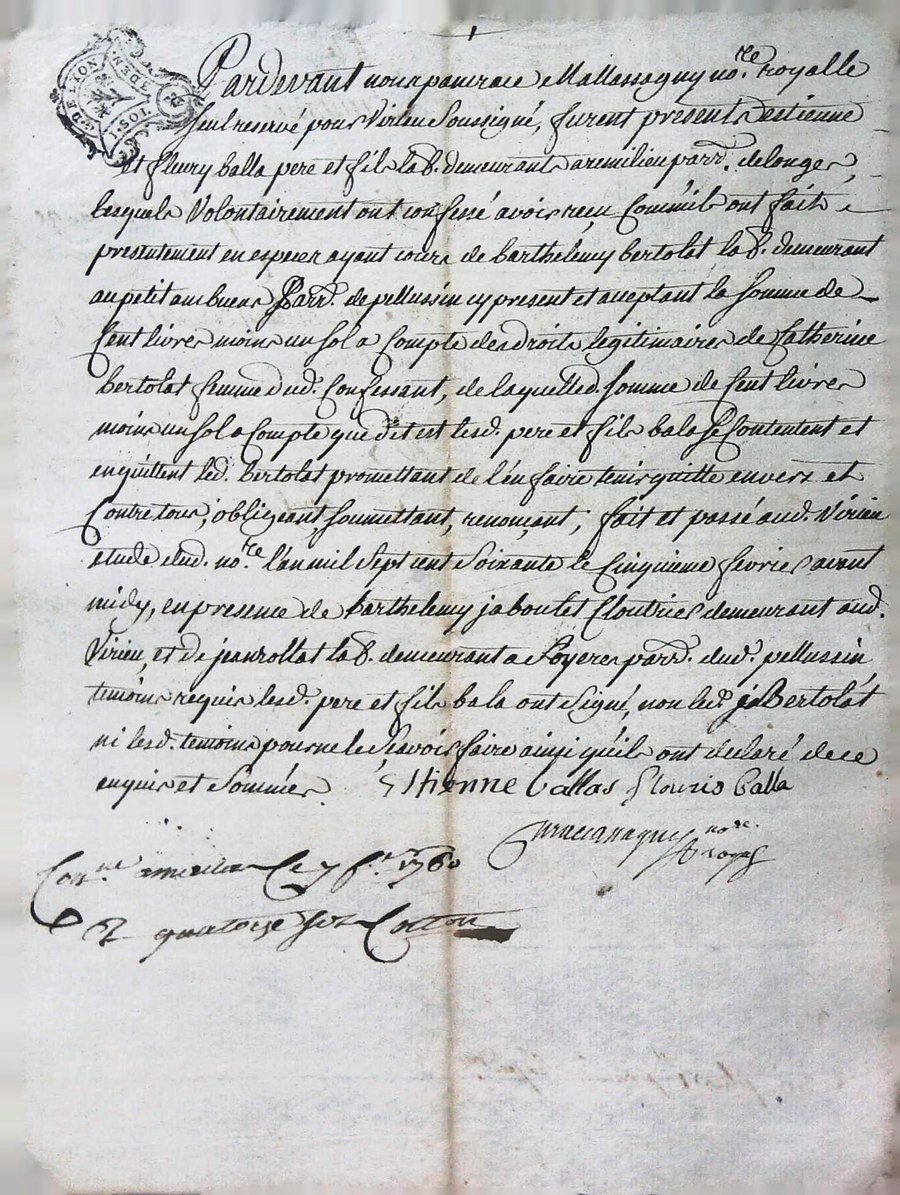 G. DE LYON
1. SOL
DEN.
Pardevant nous pancrace Mallassagny no.re royalle
seul reservé pour Virieu Soussigné, furent presents estienne
et fleury balla pere et fils lab. demeurants a remilieu parr. de longes,
lesquels Volontairement ont confessé avoir reçu Comm'ils ont fait
presentement en especes ayant cours de barthelemy bertolat, lab. demeurant
au petit ambuens Parr. de pellussin cy present et aceptant la somme de
Cent livres moins un sol a Compte des droits legitimaires de Catherine
bertolat femme dud. Confessant, de laquelled. somme de Cent livres
moins un sol a Compte que dit est lesd. pere et fils bala se Contentent et
en quittent led. Bertolat promettant de l'en faire tenir quitte envers et
Contre tous, obligeant, soumettant, renonçant; fait et passé aud. Virieu
etude dud. no.re l'an mil sept cent soixante le Cinquieme fevrier avant
midy, en presence de barthelemy jaboulet Cloutrier demeurant aud.
Virieu, et de jean rollat lab. demeurant a Soyeres parr. dud. pellussin,
temoins requis lesd. pere et fils bala ont signé, non led. Bertolat
ni lesd. temoins pour ne le sçavoir faire ainsi qu'ils ont declaré de ce
enquis et sommés. Estienne ballas flouris balla
no.re
royal
Con.lle Le 7 f. 1760
R quatorze sols Cotton